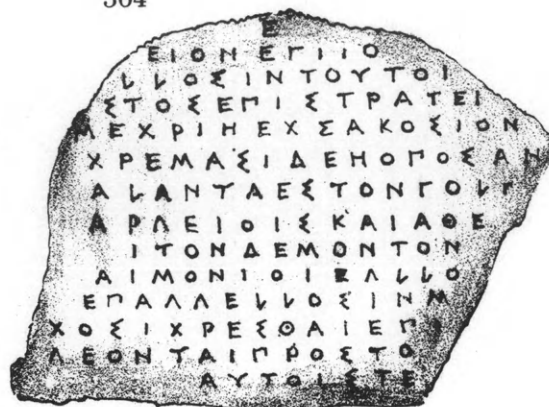 Ε
ΕΙΟΝΕΠΙΙΟ
ΛΛΟΣΙΝΤΟΥΤΟΙ
ΣΤΟΣΕΠΙΣΤΡΑΤΕΙ
ΜΕΧΡΙΗΕΧΣΑΚΟΣΙΟΝ
ΧΡΕΜΑΣΙΔΕΗΟΠΟΣΑΝ
ΑΛΑΝΤΑΕΣΤΟΝΠΟΛΓ
ΑΡΓΕΙΟΙΣΚΑΙΑΘΕ
ΙΤΟΝΔΕΜΟΝΤΟΝ
ΑΙΜΟΝΙΟΙΕΑΛΛΟ
ΕΠΑΓΓΕΛΛΟΣΙΝΜ
ΧΟΣΙΧΡΕΣΘΑΙΕΠΙ
ΓΕΟΝΤΑΙΠΡΟΣΤΟ
ΑΥΤΟΙΣΤΕ